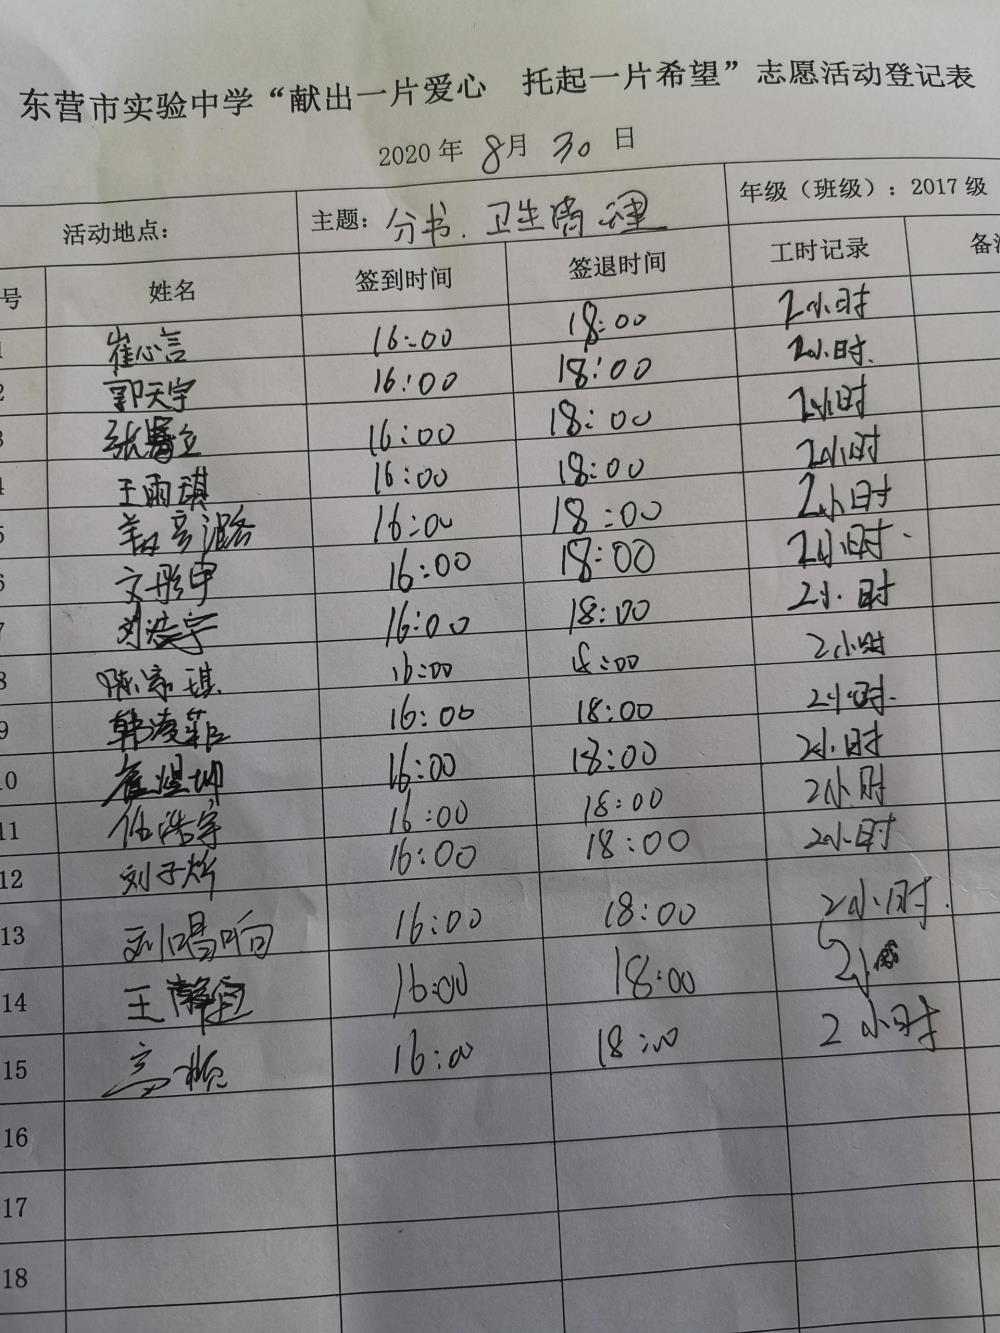 东营市实验中学“献出一片爱心 托起一片希望”志愿活动登记表
2020 年 8月 30 日
活动地点： 主题：分书.卫生清理 年级（班级）：2017 级
号 姓名 签到时间 签退时间 工时记录 备注
1 崔心言 16:00 18:00 2小时
2 郭天宇 16:00 18:00 2小时.
3 张 立 16:00 18:00 2小时
4 王雨琪 16:00 18:00 2小时
5 16:00 18:00 2小时
6 文彤宇 16:00 18:00 2小时.
7 刘浩宇 16:00 18:00 2小时
8 陈家琪 16:00 18:00 2小时
9 韩凌菲 16:00 18:00 2小时.
10 崔煜坤 16:00 18:00 2小时
11 伍浩宇 16:00 18:00 2小时
12 刘子烨 16:00 18:00 2小时
13 刘唱响 16:00 18:00 2小时.
14 王 16:00 18:00 2小
15 16:00 18:00 2小时
16
17
18